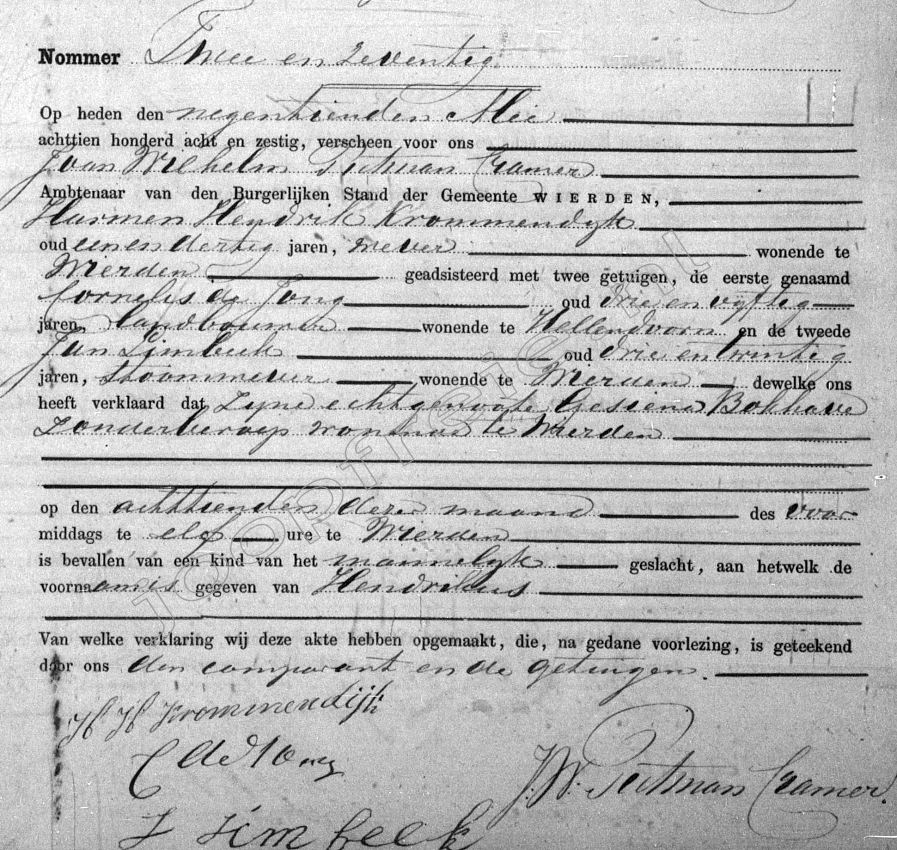 Nommer Twee en zeventig.
Op heden den negentienden Mei
achttien honderd acht en zestig, verscheen voor ons
Joan Wilhelm Putman Cramer
Ambtenaar van den Burgerlijken Stand der Gemeente WIERDEN,
Harmen Hendrik Krommendyk
oud een en dertig jaren, wever wonende te
Wierden geadsisteerd met twee getuigen, de eerste genaamd
Cornelis de Jong oud drie en vyftig
jaren, landbouwer wonende te Hellendoorn en de tweede
Jan Limbeek oud drie en twintig
jaren, stoomwever wonende te Wierden dewelke ons
heeft verklaard dat zyne echtgenoote, Gesiena Bokhove
zonder beroep wonende te Wierden
op den achttienden dezer maand des voor
middags te elf ure te Wierden
is bevallen van een kind van het mannelyk geslacht, aan hetwelk de
voornaam is gegeven van Hendrikus
Van welke verklaring wij deze akte hebben opgemaakt, die, na gedane voorlezing, is geteekend
door ons den comparant en de getuigen.
H H Krommendijk
C de Jong
J. W. Putman Cramer.
J Limbeek